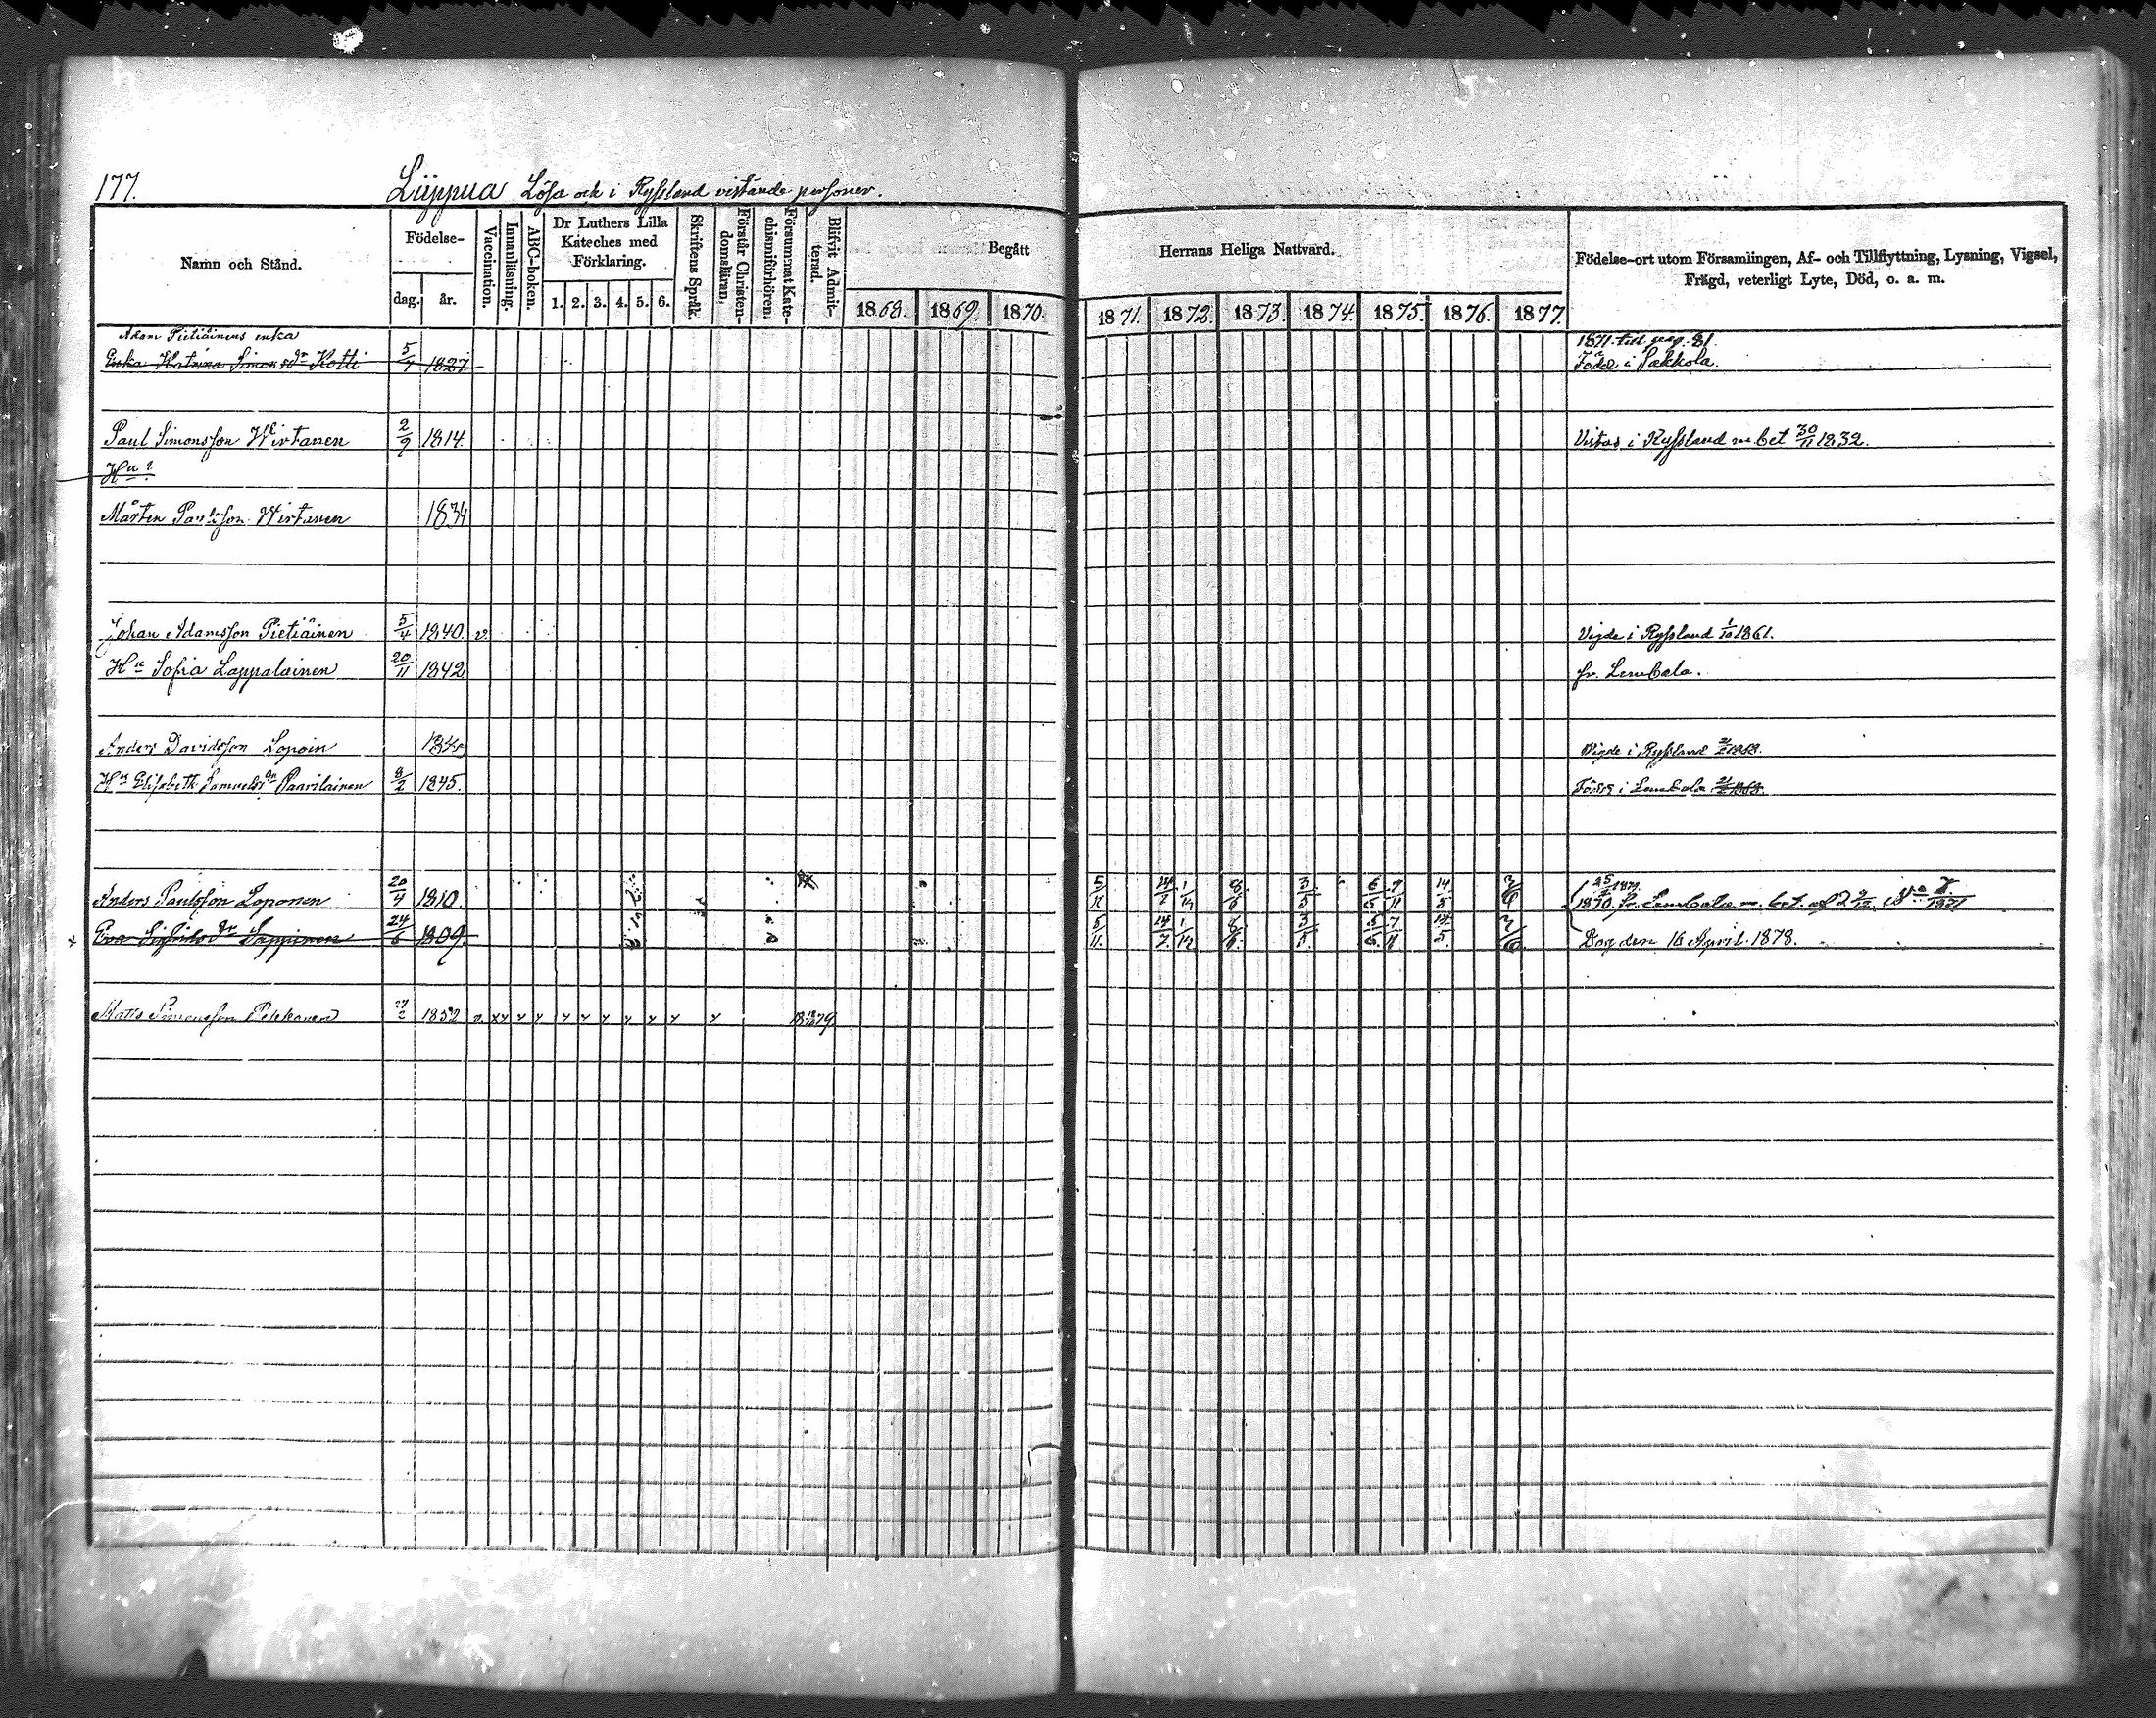 177. Liippua Lösa och i Ryssland vistande personer.
Namn och Stånd.
Födelse-
dag. år.
Vaccination.
Innanläsning.
ABC-boken.
Dr Luthers Lilla
Kateches med
Förklaring.
1. 2. 3. 4. 5. 6.
Skriftens Språk.
Förstår Christen-
domsläran.
Försummat Kate-
chismiförhören.
Blifvit Admit-
terad.
Begått Herrans Heliga Nattvard.
1868. 1869. 1870. 1871. 1872. 1873. 1874. 1875. 1876. 1877.
Födelse-ort utom Församlingen, Af- och Tillflyttning, Lysning, Vigsel,
Frägd, veterligt Lyte, Död, o. a. m.
Adam Pietiäinens enka 1871 till pag. 81.
Enka Katrina Simonsdr Kotti 5/4 1827. Född i Sakkola.
Paul Simonsson Wirtanen 2/9 1814. Vistas i Ryssland m. bet 30/11 1832.
Hu ?
Mårten Paulsson Wirtanen 1834
Johan Adamsson Pietiäinen 5/4 1840. v. Vigde i Ryssland 1/10 1861.
Hu Sofia Lappalainen 20/11 1842 fr. Lembala.
Anders Davidsson Loponen Vigde i Ryssland
Hu Elisabeth Samuelsdr Paavilainen 8/2 1845. Född i Lembala
Anders Paulsson Loponen 20/4 1810. 5/11 14/7 1/12 8/6 3/5 6/5 7/11 14/5 3/6 1870. fr. Lembala m. bet. af
Eva Sigfridsdr Sappinen 24/6 1809. 5/11 14/7 1/12 8/6 3/5 7/11 14/5 3/6 Dog den 16 April 1878.
Matts Simonsson Pekkanen 1852 v. xx x x x x x x x x x 1879.